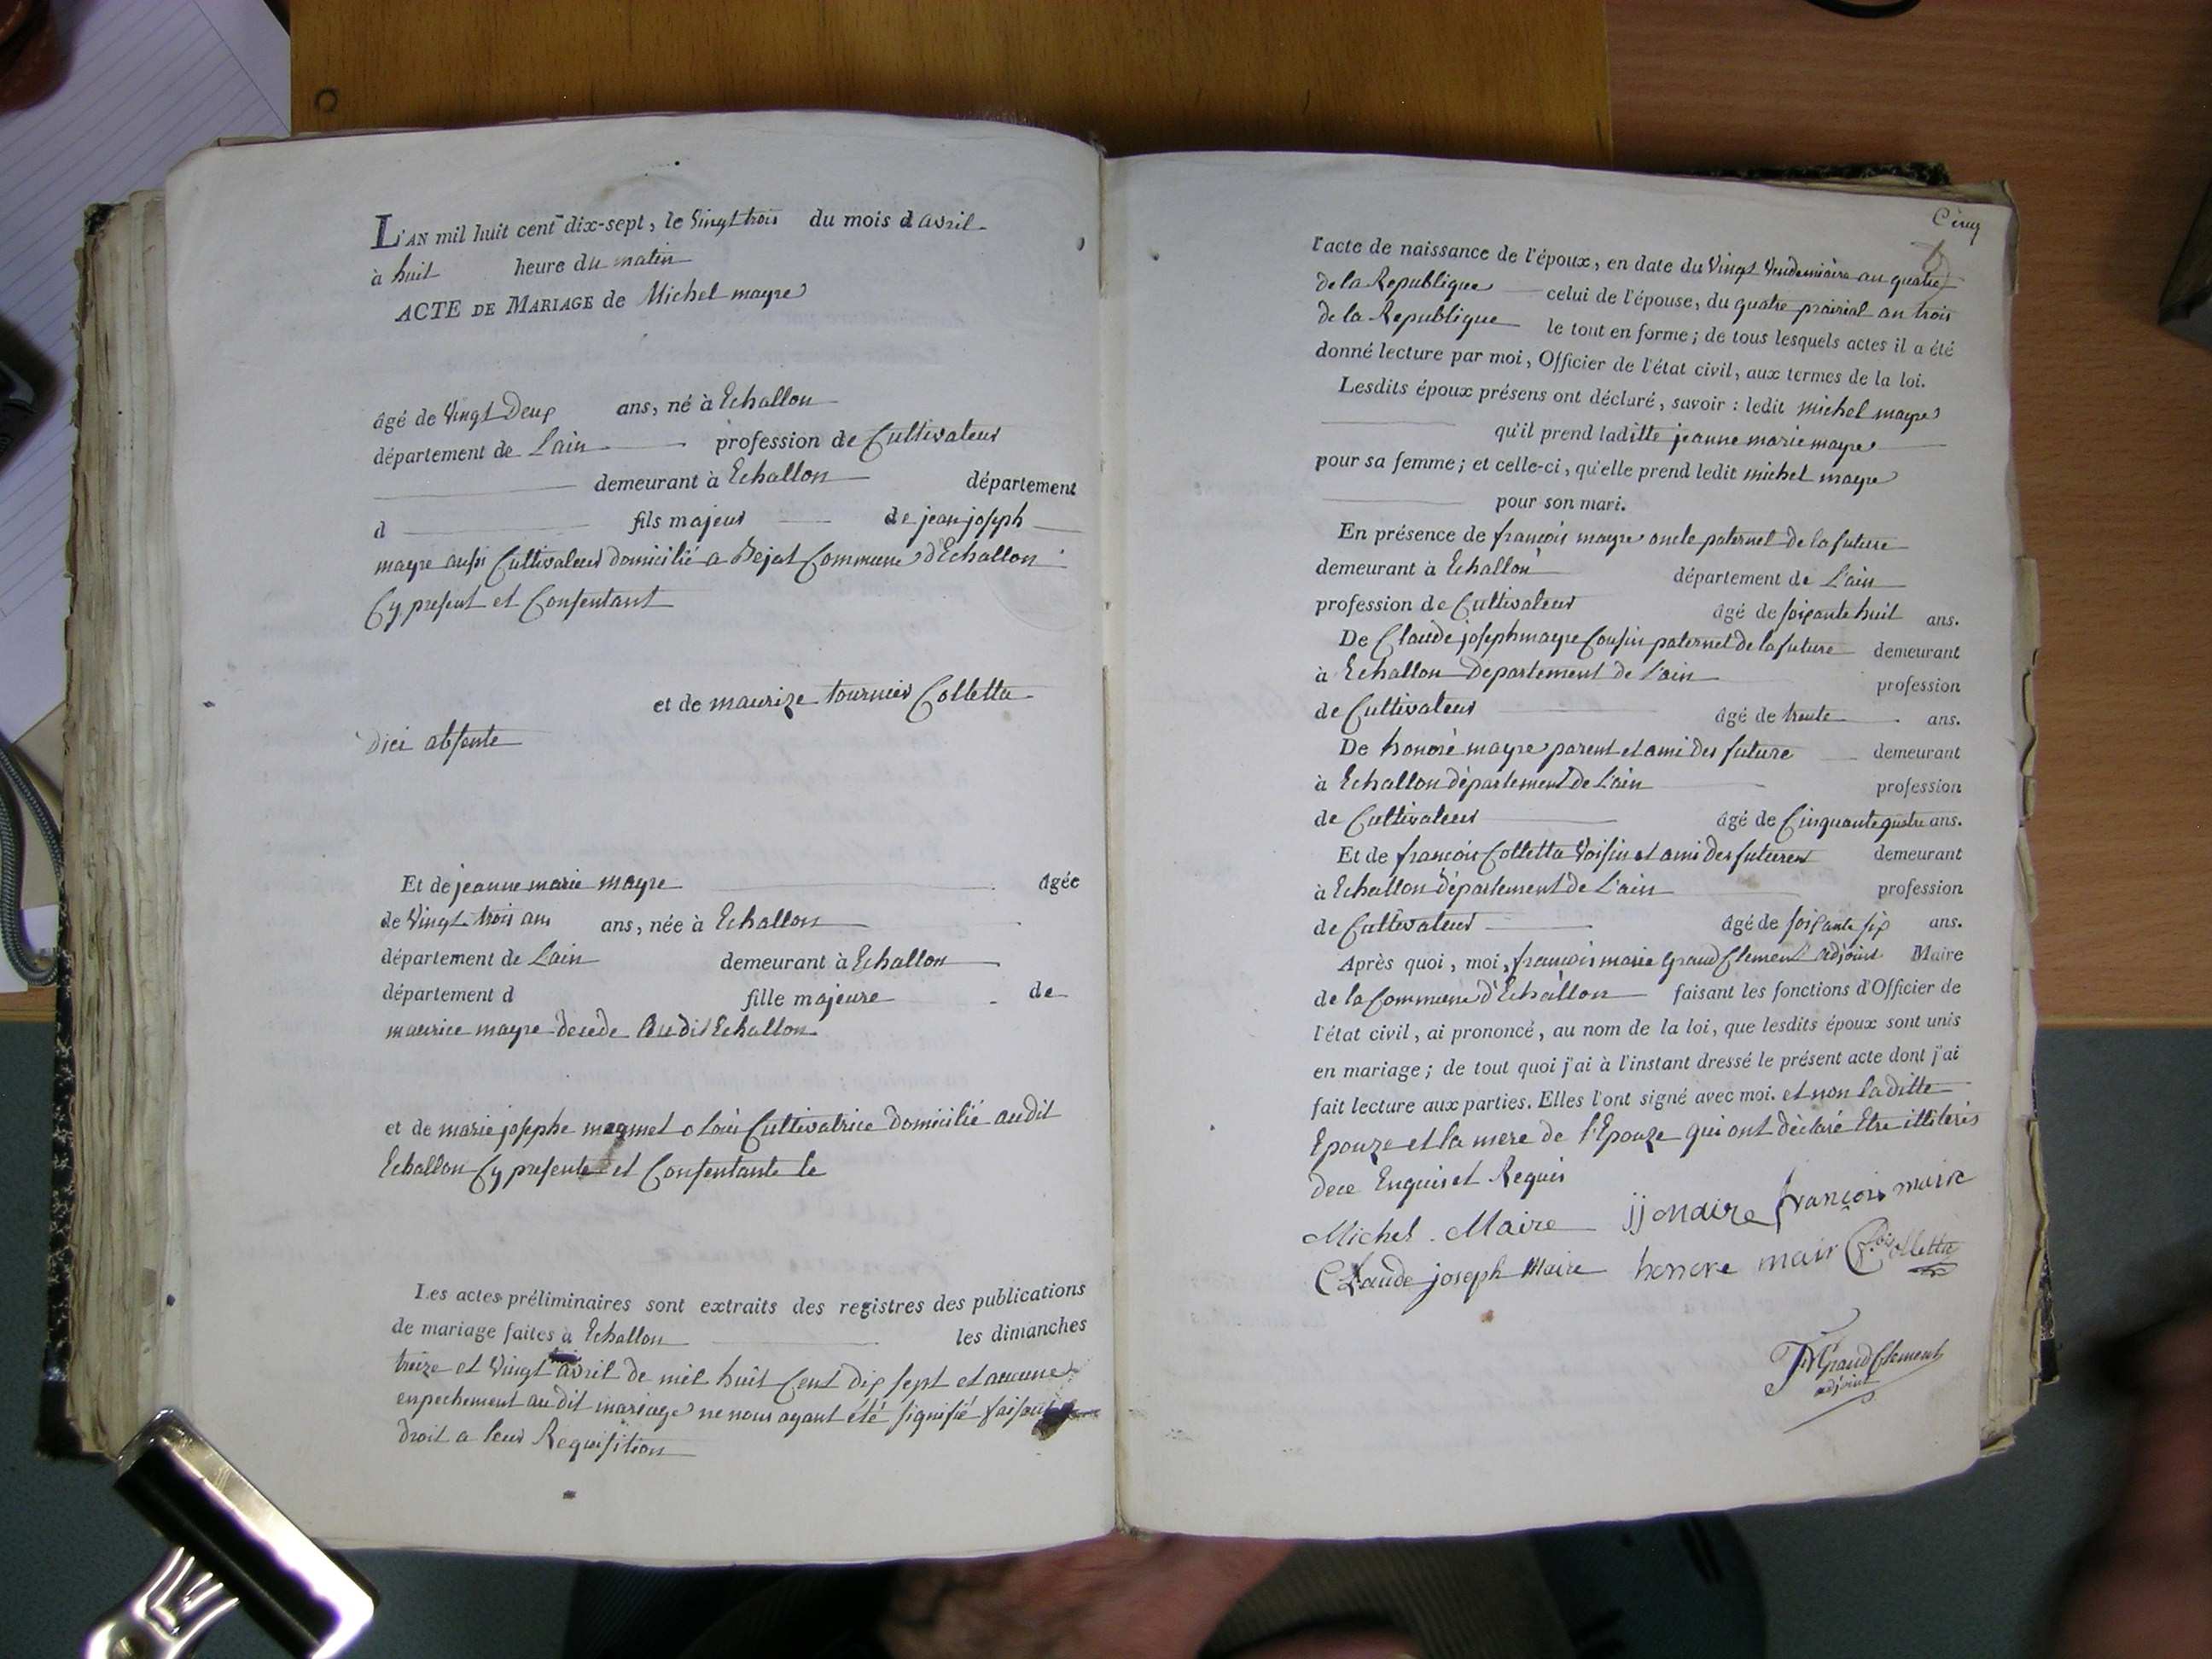 L'AN mil huit cent dix-sept, le vingt trois du mois d avril
à huit heure du matin
ACTE DE MARIAGE de Michel mayre
âgé de vingt Deux ans, né à Echallon
département de Lain profession de Cultivateur
demeurant à Echallon département
d fils majeur de jean joseph
mayre aussi Cultivateur domicilié a Commune d'Echallon
Cy present et Consentant
et de maurize tournier Colletta
dici absente
Et de jeanne marie mayre âgée
de vingt trois ans ans, née à Echallon
département de Lain demeurant à Echallon
département d fille majeure de
maurice mayre decede Audit Echallon
et de marie josephe Cultivatrice domicilié audit
Echallon Cy presente et Consentante le
Les actes préliminaires sont extraits des registres des publications
de mariage faites à Echallon les dimanches
treize et vingt avril de mil huit Cent dix sept et aucune
enpechement au dit mariage ne nous ayant été signifié faisant
droit a leur Requisition
Cinq
l'acte de naissance de l'époux, en date du vingt vendemiaire an quatre
de la Republique celui de l'épouse, du quatre prairial an trois
de la Republique le tout en forme; de tous lesquels actes il a été
donné lecture par moi, Officier de l'état civil, aux termes de la loi.
Lesdits époux présens ont déclaré, savoir : ledit michel mayre
qu'il prend laditte jeanne marie mayre
pour sa femme; et celle-ci, qu'elle prend ledit michel mayre
pour son mari.
En présence de françois mayre oncle paternel de la future
demeurant à Echallon département de L'ain
profession de Cultivateur âgé de soixante huit ans.
De Claude joseph mayre Cousin paternel de la future demeurant
à Echallon Departement de L'ain profession
de Cultivateur âgé de trente ans.
De honoré mayre parent et ami des future demeurant
à Echallon département de L'ain profession
de Cultivateur âgé de Cinquante quatre ans.
Et de françois Colletta voisin et ami des futures demeurant
à Echallon département de L'ain profession
de Cultivateur âgé de soixante six ans.
Après quoi, moi, françois marie Grand Clement adjoint Maire
de la Commune d'Echallon faisant les fonctions d'Officier de
l'état civil, ai prononcé, au nom de la loi, que lesdits époux sont unis
en mariage; de tout quoi j'ai à l'instant dressé le présent acte dont j'ai
fait lecture aux parties. Elles l'ont signé avec moi. et non laditte
Epouze et la mere de l'Epouze qui ont déclaré Etre illiteris
dece Enquis et Requis
Michel Maire jjmaire françois maire
Claude joseph Maire honore mair Colletta
GrandClement
adjoint